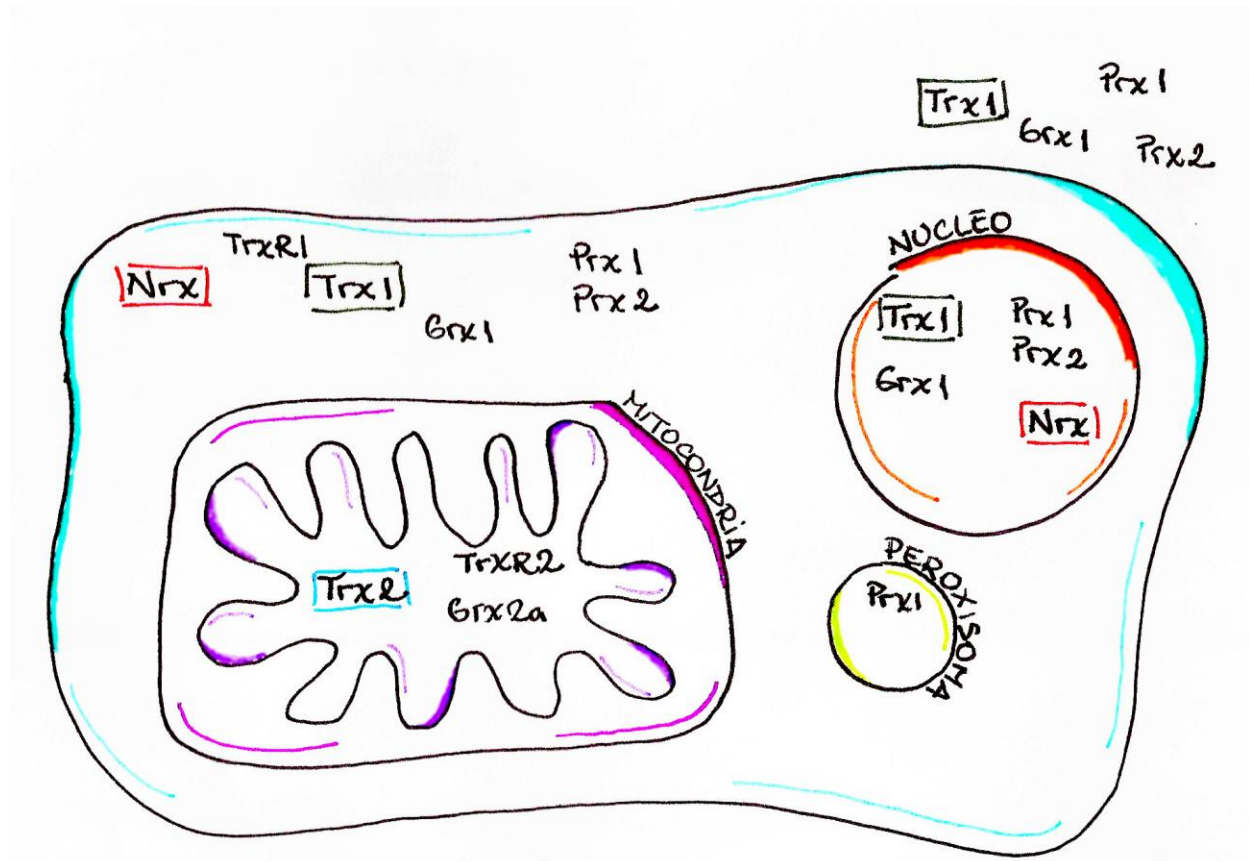 Trx1
Prx1
Grx1
Prx2
TrxR1
Nrx
Trx1
Prx1
Prx2
Grx1
NUCLEO
Trx1
Prx1
Prx2
Grx1
Nrx
MITOCONDRIA
TrxR2
Trx2
Grx2a
PEROXISOMA
Prx1